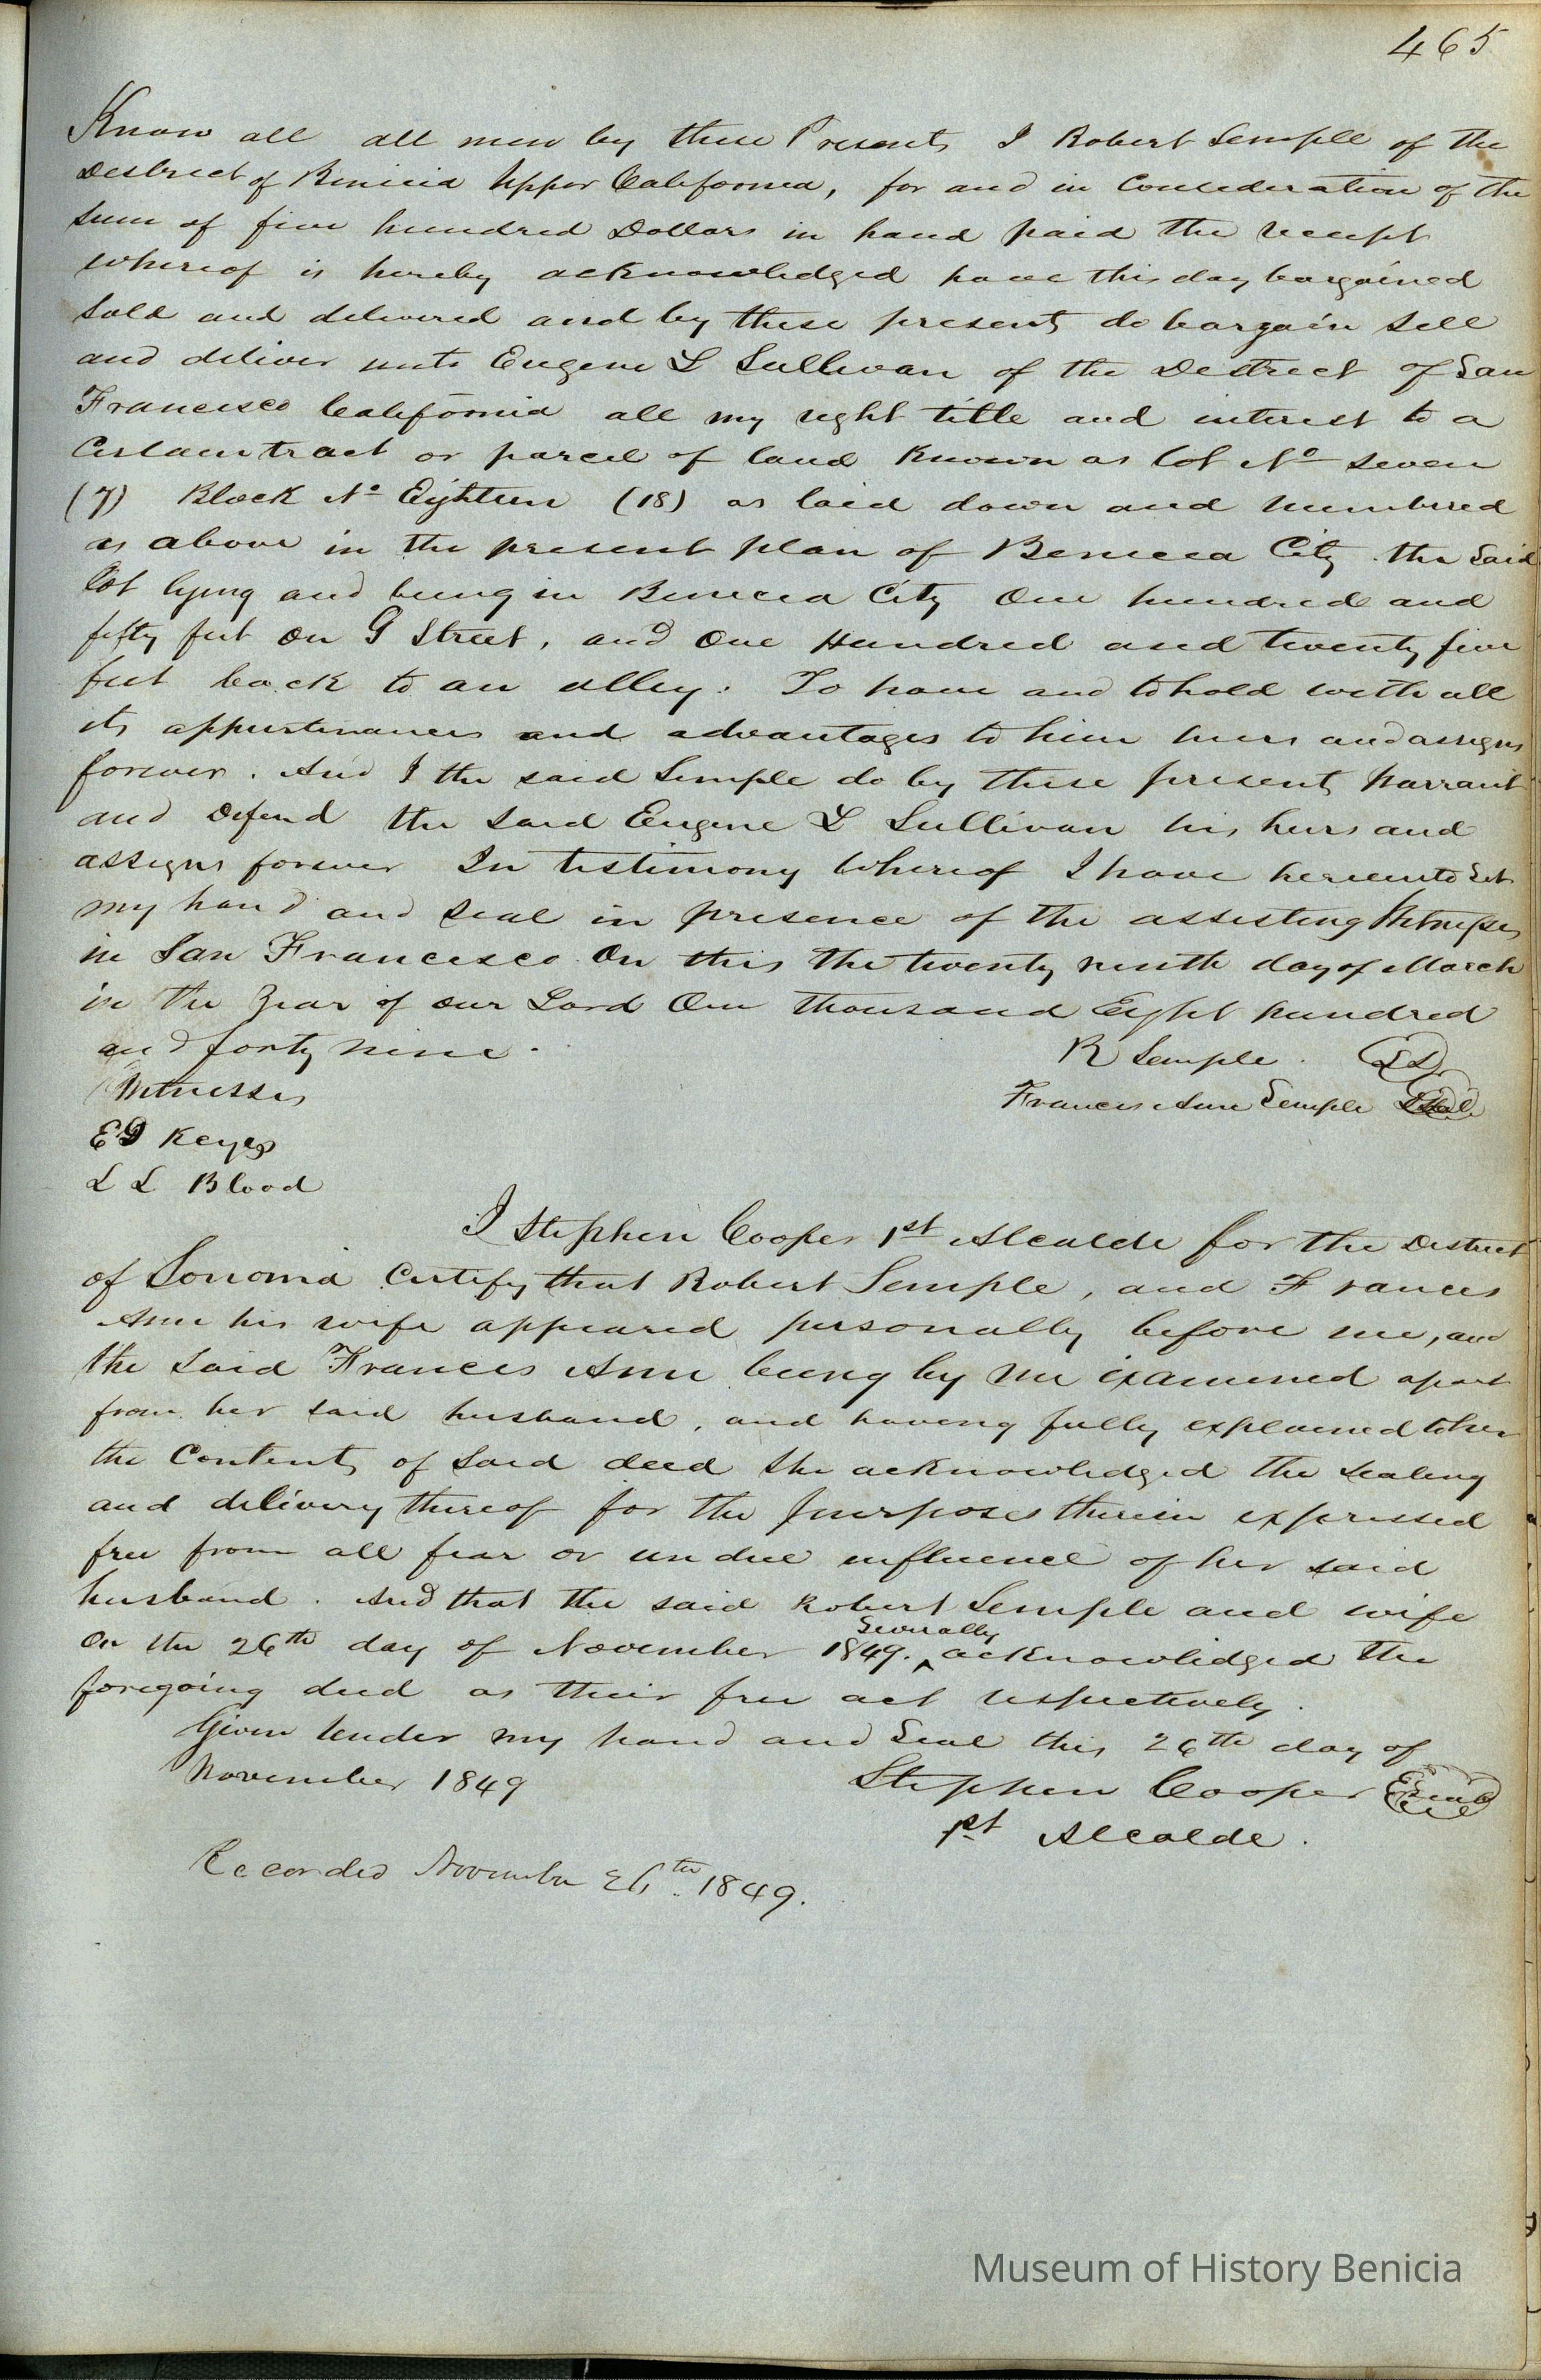 465
Know all all men by these Presents I Robert Semple of the
District of Benicia Upper California, for and in Consideration of the
sum of five hundred Dollars in hand paid the receipt
whereof is hereby acknowledged have this day bargained
sold and delivered and by these presents do bargain sell
and deliver unto Eugene L Sullivan of the District of San
Francisco California all my right title and interest to a
Certain tract or parcel of land Known as lot No seven
(7) Block No Eighteen (18) as laid down and numbered
as above in the present plan of Benicia City the said
lot lying and being in Benicia City One hundred and
fifty feet on G Street, and One Hundred and twenty five
feet back to an alley. To have and to hold with all
its appurtinances and advantages to him heirs and assigns
forever. And I the said Semple do by these presents Warrant
and Defend the said Eugene L Sullivan his heirs and
assigns forever In testimony Whereof I have hereunto set
my hand and seal in presence of the assisting Witnesses
in San Francisco On this the twenty ninth day of March
in the Year of our Lord One thousand Eight hundred
and forty nine.
R Semple. LS
Witnesses
Frances Ann Semple Seal
ED Keyes
L L Blood
I Stephen Cooper 1st Alcalde for the District
of Sonoma Certify that Robert Semple, and Frances
Ann his wife appeared personally before me, and
the said Frances Ann being by me examined apart
from her said husband, and having fully explained to her
the Contents of said deed she acknowledged the sealing
and delivery thereof for the purposes therein expressed
free from all fear or undue influence of her said
husband. And that the said Robert Semple and wife
On the 26th day of November 1849. severally acknowledged the
foregoing deed as their free act respectively.
Given Under my hand and Seal this 26th day of
November 1849
Stephen Cooper Seal
1st Alcalde.
Recorded November 26th. 1849.
Museum of History Benicia